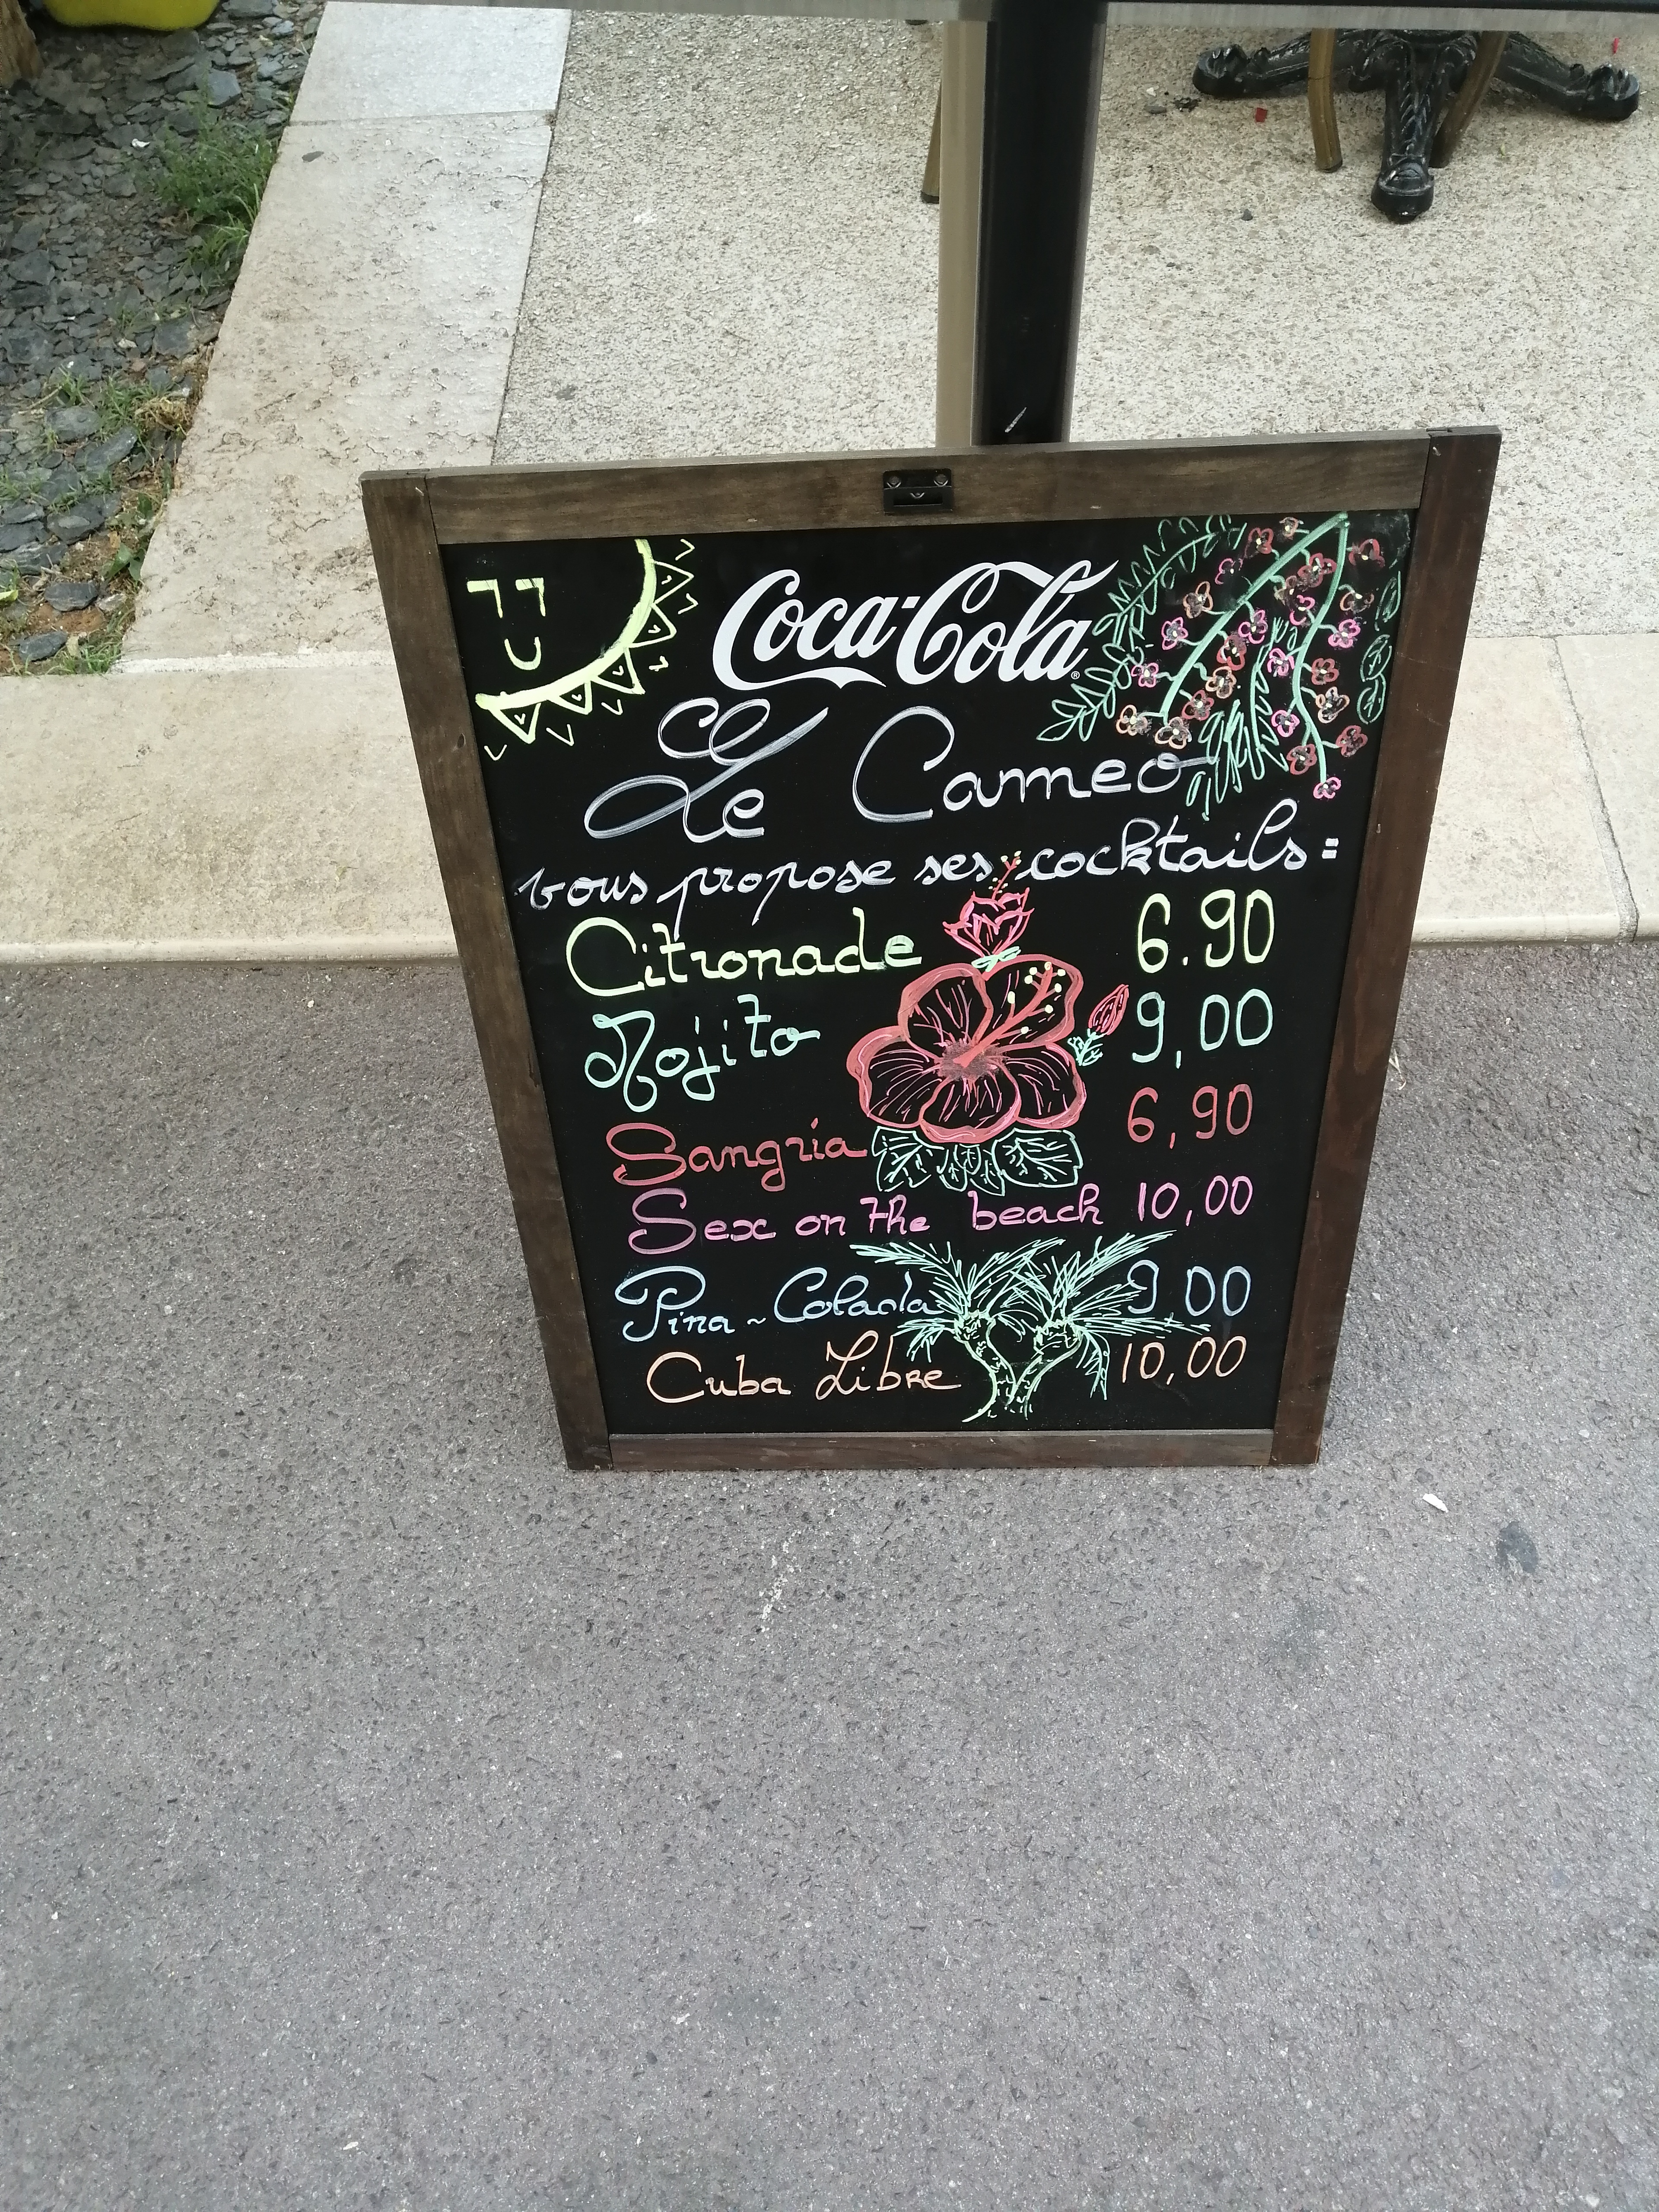 Coca-Cola
Le Cameo
vous propose ses cocktails :
Citronade 6.90
Mojito 9,00
Sangria 6,90
Sex on the beach 10,00
Pina-Colada 9,00
Cuba Libre 10,00